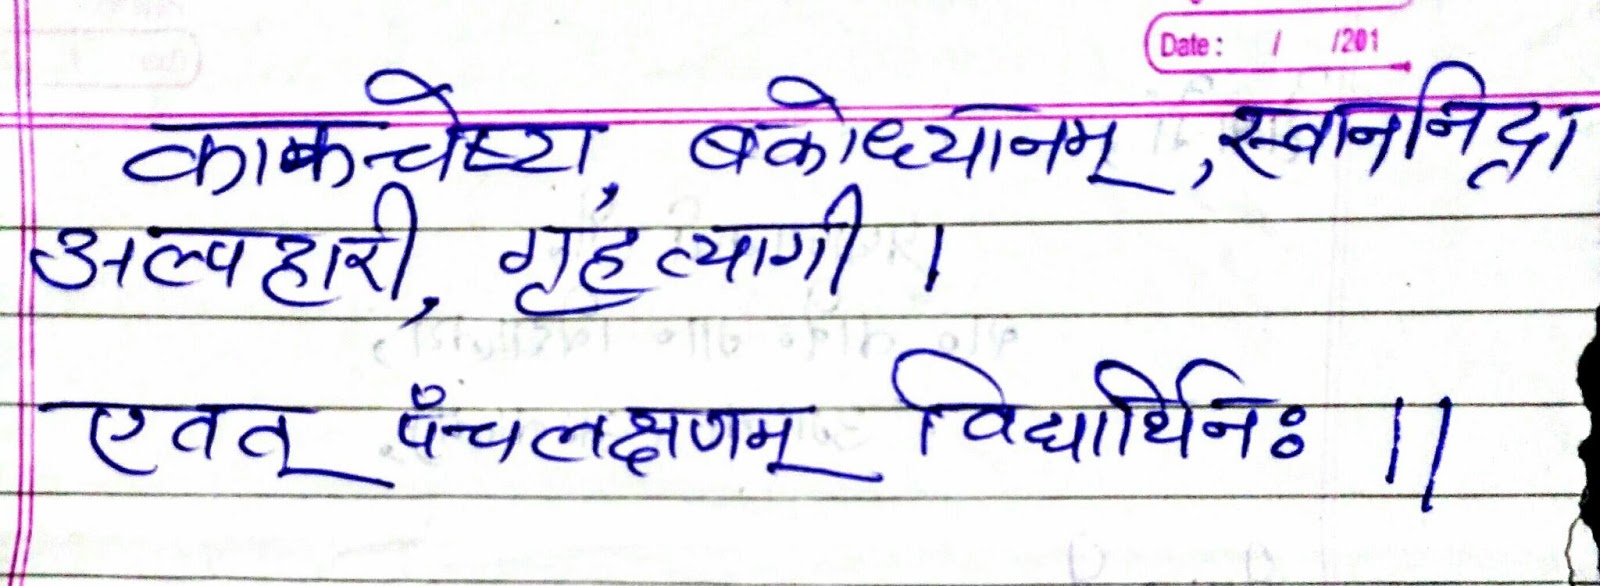 Date: / /201
काकचेष्टा, बकोध्यानम्, स्वाननिद्रा
अल्पहारी, गृहत्यागी।
एतत् पँचलक्षणम् विद्यार्थिनः ||